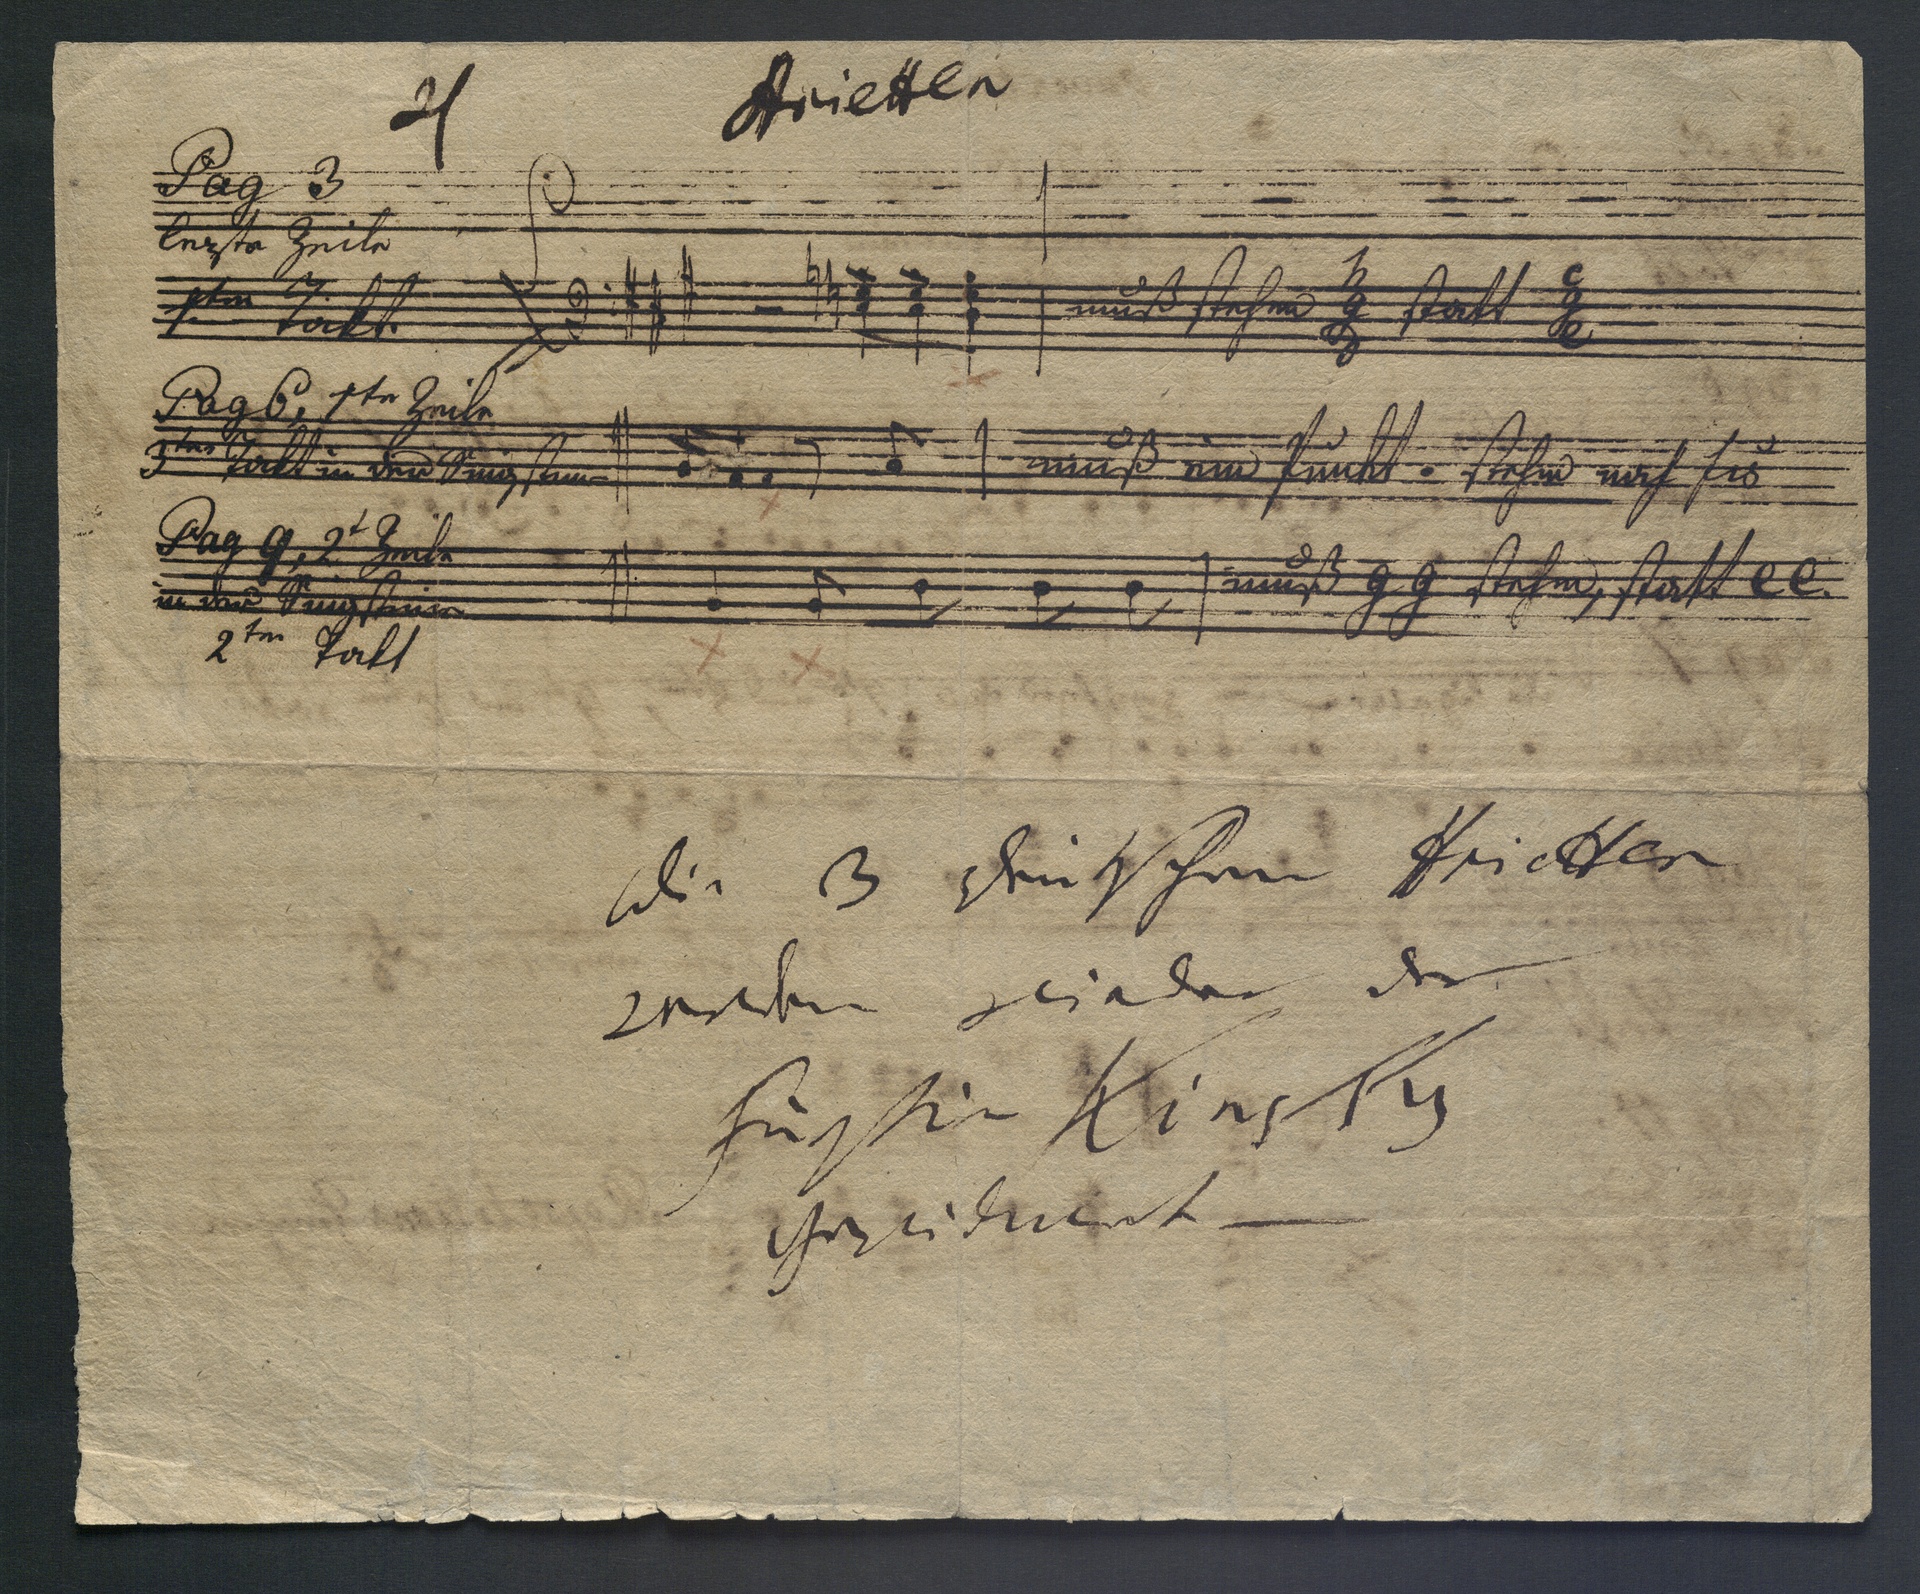 Arietten
Pag 3
lezte Zeile
1ten Takt.
muß stehen h g d statt c g e
Pag 6, 1te Zeile
3ter Takt in der Singstim
muß ein Punkt . stehen nach fis
Pag 9, 2t Zeile
in der Singstime
2ten Takt
muß g g stehen, statt e e.
die 3 deutschen Arietten
werden wieder der
Fürstin Kinsky
gewidmet —